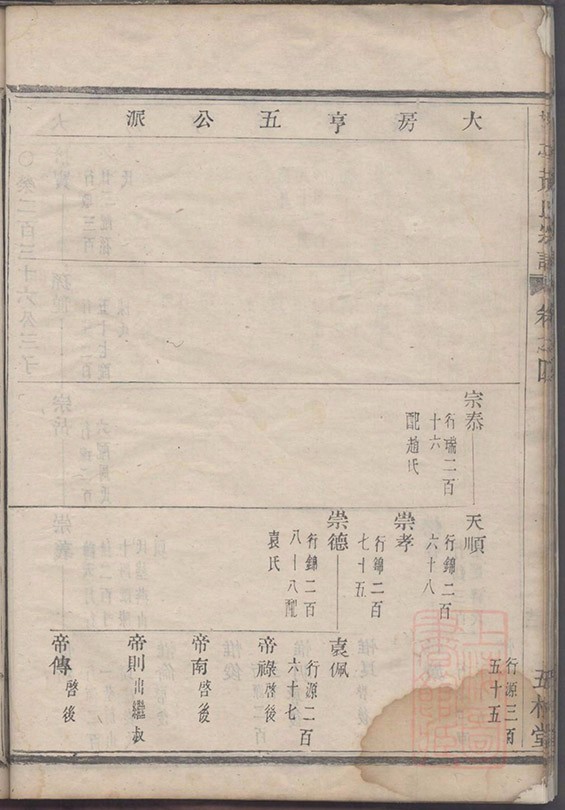 大房亨五公派
宗泰
行瑞二百
十六
配趙氏
天順
行錦二百
六十八
崇孝
行錦二百
七十五
崇德
行錦二百
八十八配
袁氏
行源三百
五十五
袁佩
行源二百
六十七
帝祿啓後
帝南啓後
帝則出繼叔
帝傳啓後
黃氏宗譜
卷之四
五桂堂